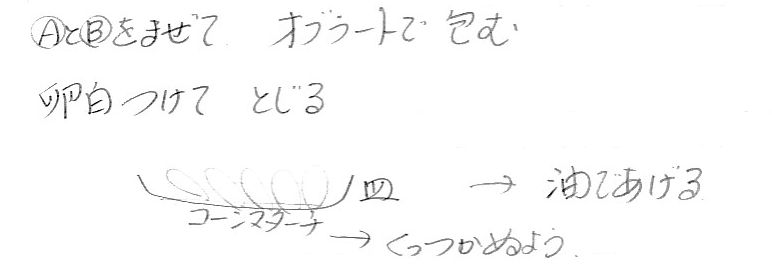 ⒶとⒷをまぜて オブラートで包む
卵白つけて とじる
皿 → 油であげる
コーンスターチ
→ くっつかぬよう.